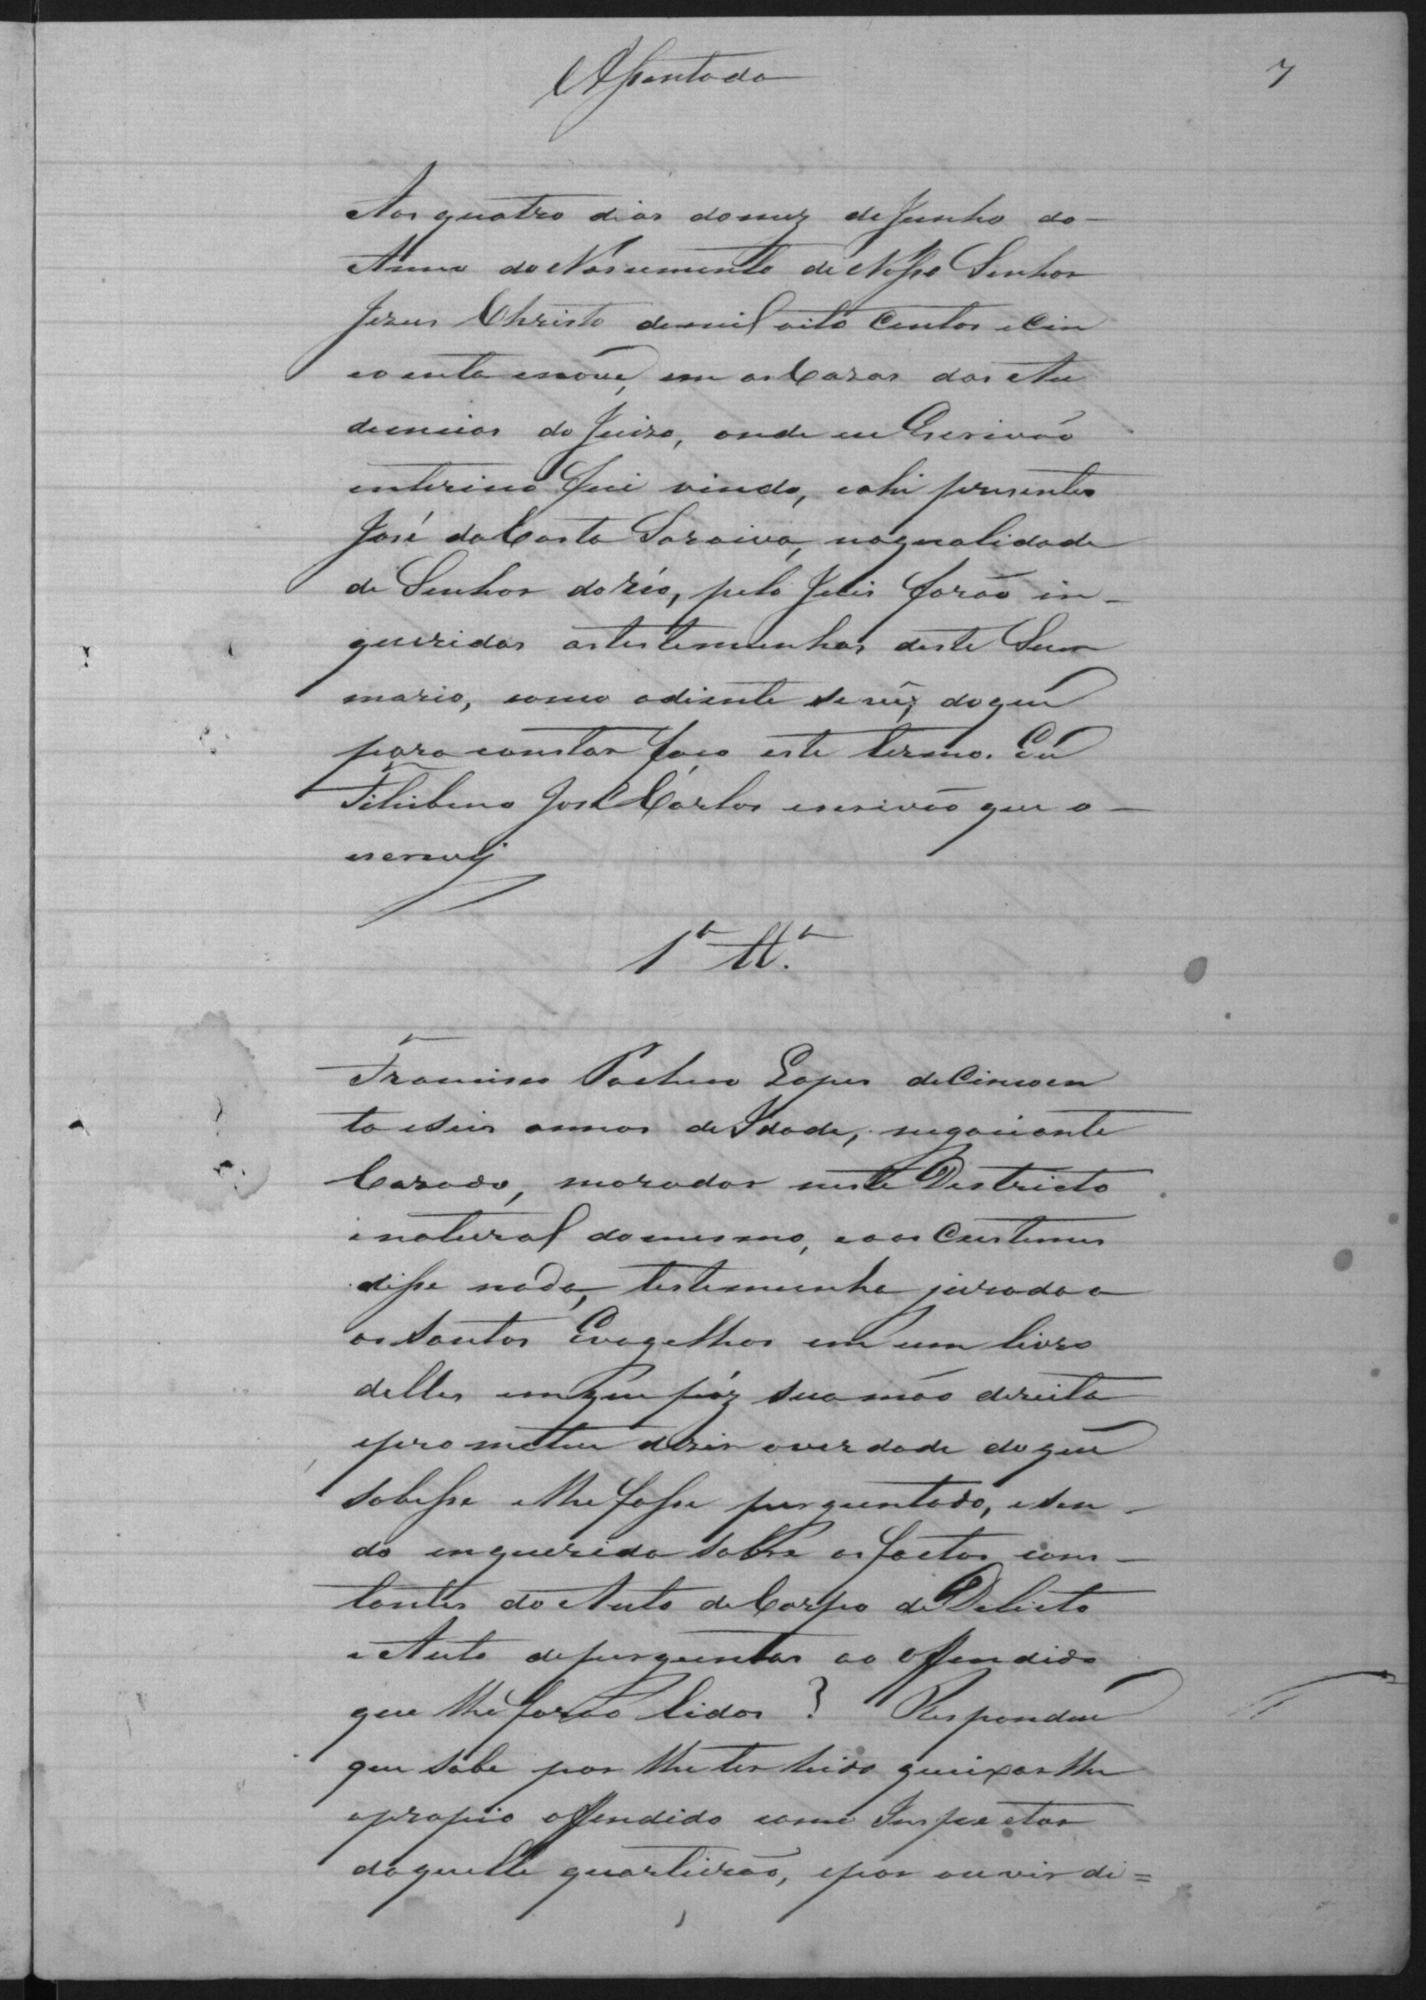 Assentada
7
Aos quatro dias do mez de Junho do
Anno do Nascimento de Nosso Senhor
Jezus Christo de mil oito centos e cin
coenta e nove, em as Cazas das Au
diencias do Juizo, onde eu Escrivão
interino fui vindo, e ahi prezentes
José da Costa Saraiva, na qualidade
de Senhor do réo, pelo Juis forão in-
queridas as testemunhas deste Sum
mario, como adiente se vê, do que
para constar faço este termo. Eu
José Carlos escrivão que o
escrevy
1ª Ttª
Francisco Pacheco Lopes de Cincoen
ta e seis annos de Idade, negociante
Cazado, morador neste Districto
e natural do mesmo, e aos Custumes
disse nada, testemunha jurada a
os Santos Evagelhos em um livro
delles em que pôz sua mão direita
e prometeu dizer a verdade do que
sobesse e lhe fosse perguntado, e sen-
do enquerido sobre os factos cons-
tantes do Auto de Corpo de Delicto
e Auto de perguntas ao offendido
que lhe forão lidos? Respondeu
que sabe por lhe ter hido queixar lhe
o propio offendido como Inspector
daquelle quarteirão, e por ouvir di=